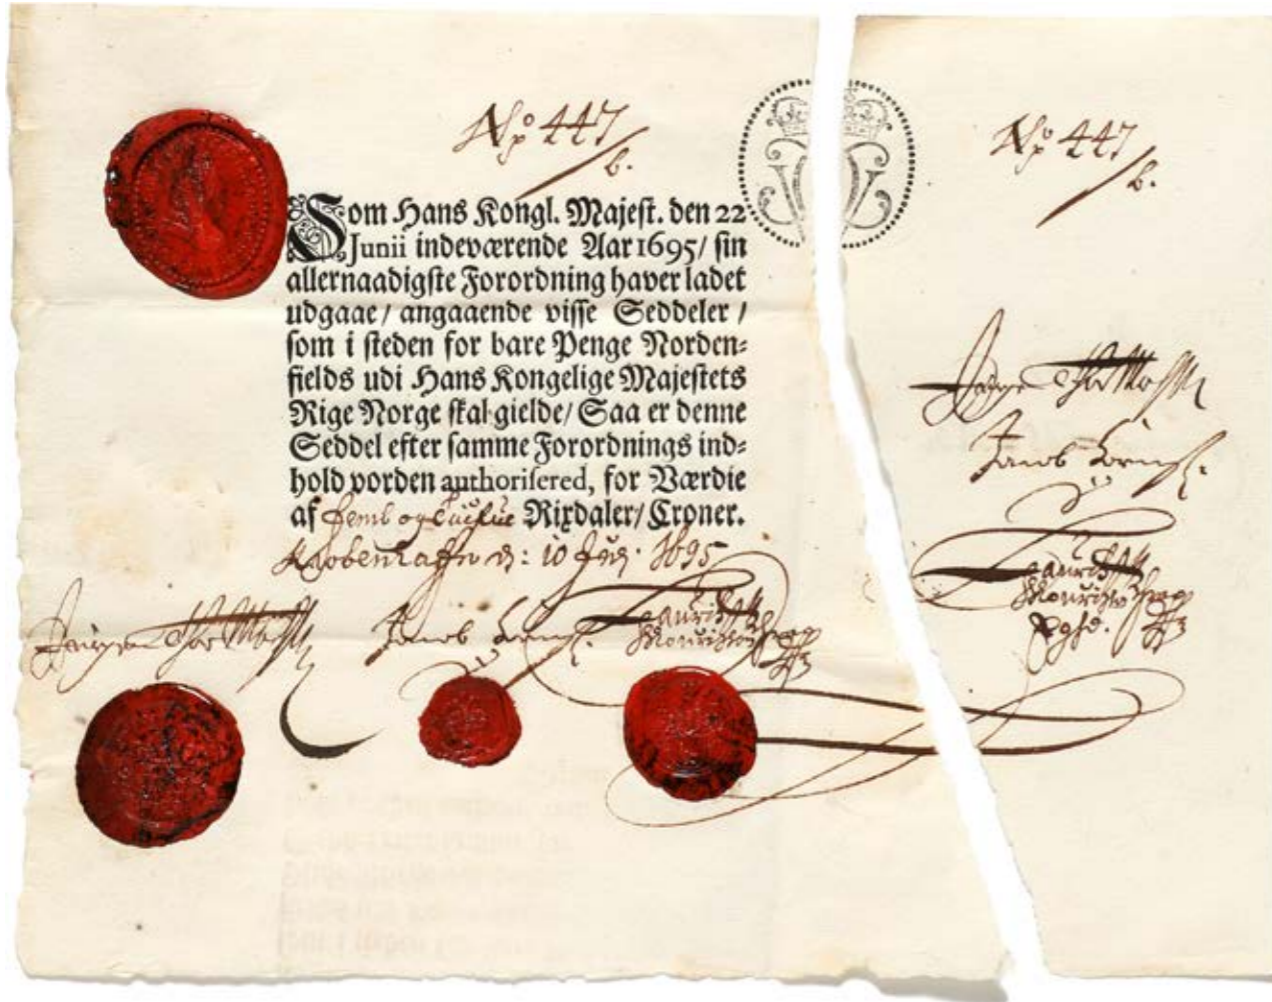 No 447
No 447
b.
b.
Som Hans Kongl. Majest. den 22
Junii indeværende Aar 1695/ sin
allernaadigste Forordning haver ladet
udgaae / angaaende visse Seddeler /
som i steden for bare Penge Norden=
fields udi Hans Kongelige Majestets
Rige Norge skal gielde/ Saa er denne
Seddel efter samme Forordnings ind=
hold vorden authorisered, for Værdie
af femb og Rixdaler/ Croner.
10 1695
Jacob
Jacob